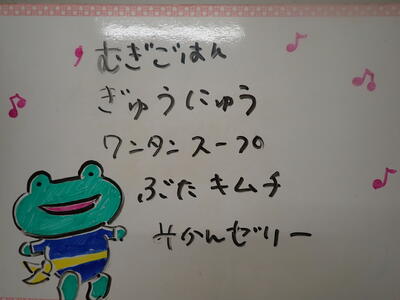 むぎごはん
ぎゅうにゅう
ワンタンスープ
ぶたキムチ
みかんゼリー